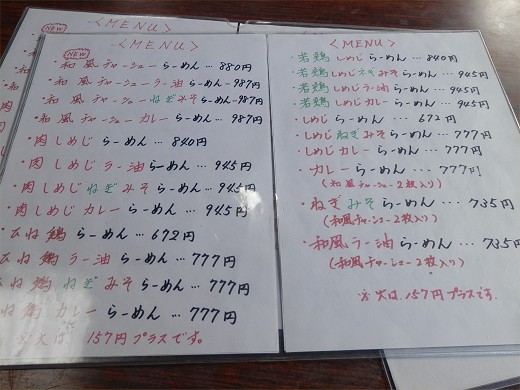 NEW
<MENU>
<MENU>
NEW
・和風チャーシューらーめん…880円
・和風チャーシューラー油らーめん-987円
・和風チャーシューねぎみそらーめん-987円
・和風チャーシューカレーらーめん…987円
・肉しめじらーめん…840円
・肉しめじラー油らーめん…945円
・肉しめじねぎみそらーめん…945円
・肉しめじカレーらーめん…945円
・ひね鶏らーめん…672円
ひね鶏ラー油らーめん…777円
ひね鶏ねぎみそらーめん…777円
ひね鶏カレーらーめん…777円
※大は、157円プラスです。
<MENU>
・若鶏しめじらーめん…840円
・若鶏しめじねぎみそらーめん…945円
・若鶏しめじラー油らーめん…945円
・若鶏しめじカレーらーめん…945円
・しめじらーめん…672円
・しめじねぎみそらーめん…777円
・しめじカレーらーめん…777円
・カレーらーめん…777円
(和風チャーシュー2枚入り)
・ねぎみそらーめん…735円
(和風チャーシュー2枚入り)
・和風ラー油らーめん…735円
(和風チャーシュー2枚入り)
※大は、157円プラスです.